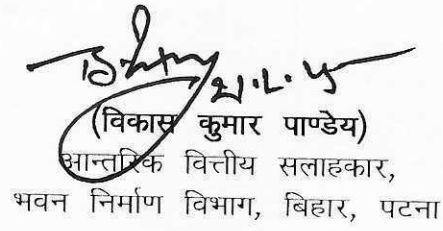 (विकास कुमार पाण्डेय)
आन्तरिक वित्तीय सलाहकार,
भवन निर्माण विभाग, बिहार, पटना